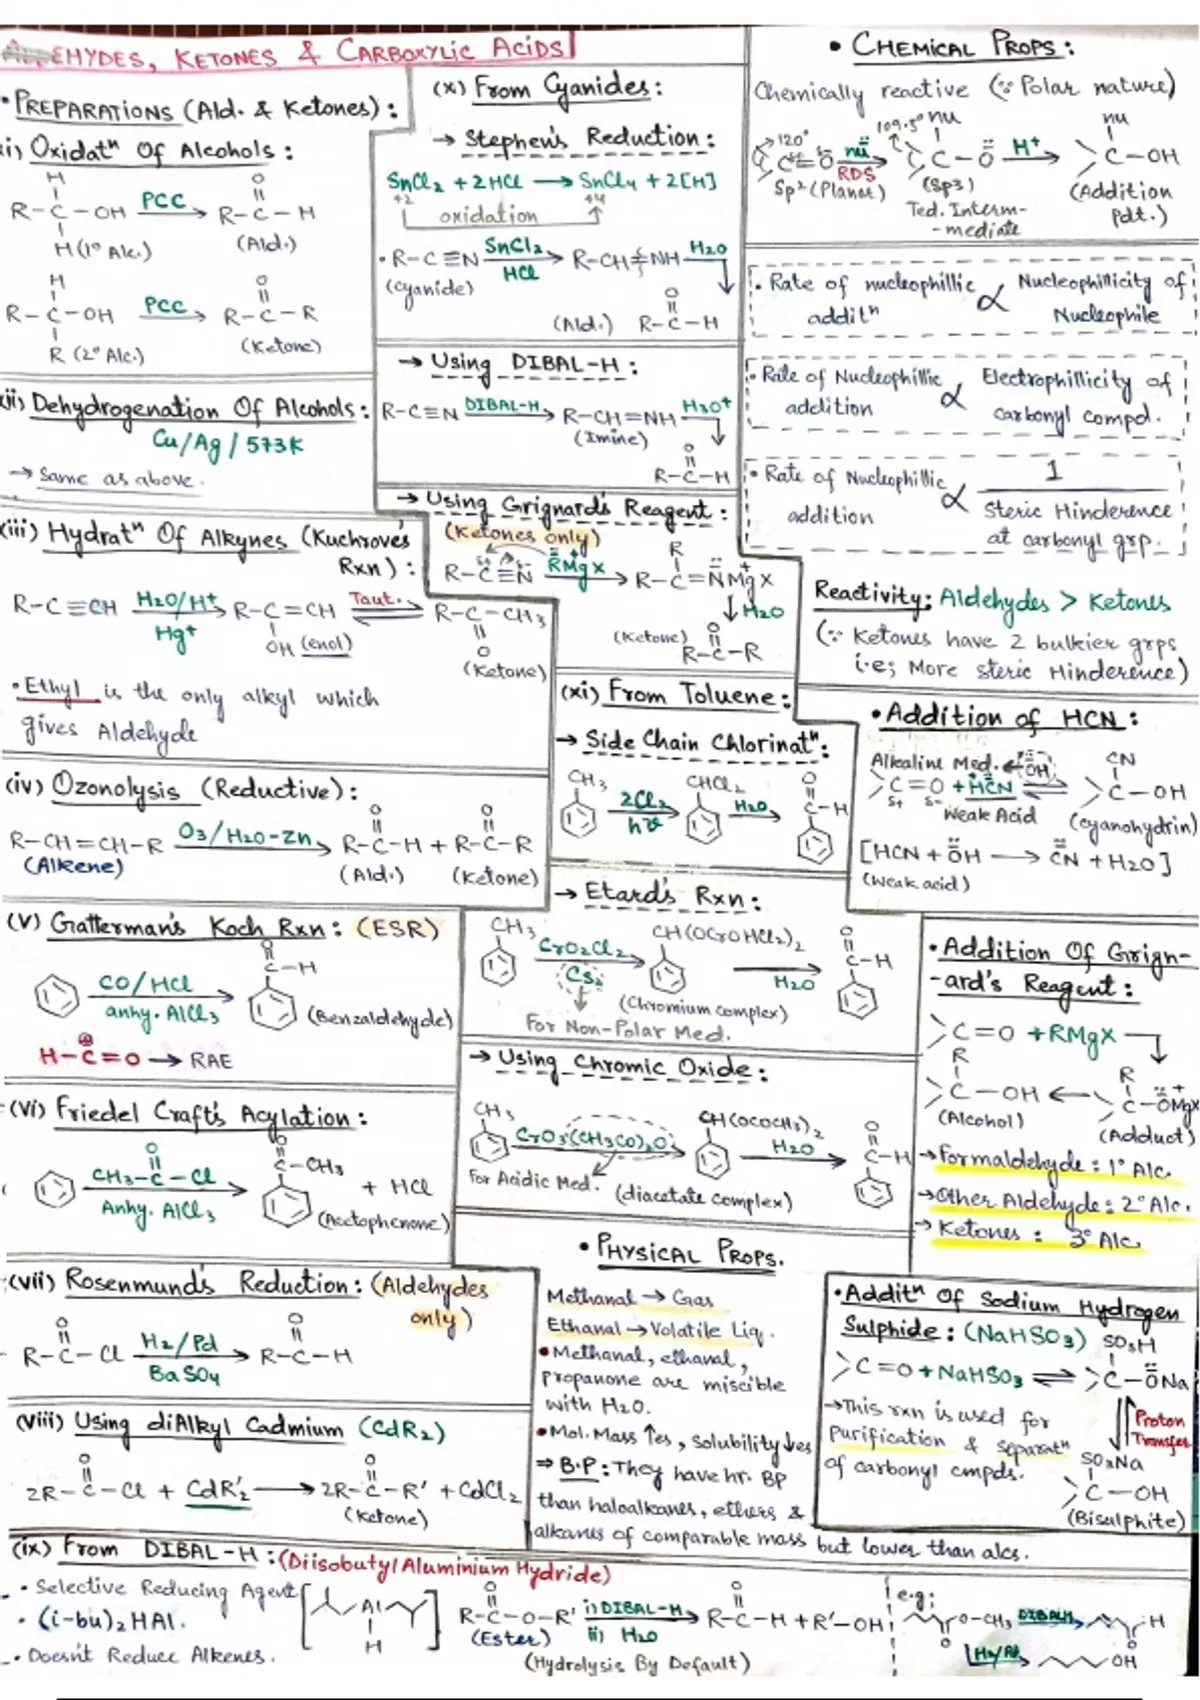 EHYDES, KETONES & CARBOXYLIC ACIDS
• PREPARATIONS (Ald. & Ketones):
i) Oxidatⁿ Of Alcohols:
H
R-C-OH PCC → R-C-H
O
H (1° Alc.) (Ald.)
H
R-C-OH PCC → R-C-R
O
R (2° Alc.) (Ketone)
ii) Dehydrogenation Of Alcohols:
Cu/Ag / 573K
→ Same as above.
(iii) Hydratⁿ Of Alkynes (Kuchrove's
Rxn):
R-C≡CH H2O/H+ → R-C=CH Taut. ⇌ R-C-CH3
Hg+ OH (enol) O
(Ketone)
• Ethyl is the only alkyl which
gives Aldehyde
(iv) Ozonolysis (Reductive):
O O
R-CH=CH-R O3/H2O-Zn → R-C-H + R-C-R
(Alkene) (Ald.) (Ketone)
(v) Gatterman's Koch Rxn: (ESR)
O
C-H
CO/HCl →
anhy. AlCl3 (Benzaldehyde)
H-C=O → RAE
⊕
(vi) Friedel Craft's Acylation:
O O
CH3-C-Cl → C-CH3 + HCl
Anhy. AlCl3 (Acetophenone)
(vii) Rosenmund's Reduction: (Aldehydes
only)
O O
R-C-Cl H2/Pd → R-C-H
BaSO4
(viii) Using diAlkyl Cadmium (CdR2)
O O
2R-C-Cl + CdR'2 → 2R-C-R' + CdCl2
(Ketone)
(ix) From DIBAL-H: (Diisobutyl Aluminium Hydride)
• Selective Reducing Agent
• (i-bu)2HAl.
• Doesn't Reduce Alkenes.
Al
H
O O
R-C-O-R' i) DIBAL-H → R-C-H + R'-OH
(Ester) ii) H2O
(Hydrolysis By Default)
e.g:
O-CH3 DIBALH → H
O O
H2/Pd → OH
(x) From Cyanides:
→ Stephen's Reduction:
SnCl2 + 2HCl → SnCl4 + 2[H]
+2 oxidation +4
• R-C≡N SnCl2 → R-CH=NH H2O
(cyanide) HCl
O
(Ald.) R-C-H
→ Using DIBAL-H:
R-C≡N DIBAL-H → R-CH=NH H3O+
(Imine)
O
R-C-H
→ Using Grignard's Reagent:
(Ketones only)
R
R-C≡N RMgX → R-C=NMgX
↓ H2O
(Ketone) O
R-C-R
(xi) From Toluene:
→ Side Chain Chlorinatⁿ:
CH3 CHCl2 O
2Cl2 → H2O → C-H
hν
→ Etard's Rxn:
CH3 CH(OCrOHCl2)2 O
CrO2Cl2 → H2O → C-H
CS2
(Chromium complex)
For Non-Polar Med.
→ Using Chromic Oxide:
CH3 CH(OCOCH3)2 O
CrO3(CH3CO)2O → H2O → C-H
For Acidic Med. (diacetate complex)
• PHYSICAL PROPS.
Methanal → Gas
Ethanal → Volatile Liq.
• Methanal, ethanal,
propanone are miscible
with H2O.
• Mol. Mass ↑es, Solubility ↓es
⇒ B.P: They have hr. BP
than haloalkanes, ethers &
alkanes of comparable mass but lower than alcs.
• CHEMICAL PROPS:
Chemically reactive (∵ Polar nature)
120° 109.5° nu nu
C=O nu → C-O H+ → C-OH
RDS
Sp2 (Planar) (Sp3) (Addition
Ted. Interm- Pdt.)
-mediate
• Rate of nucleophillic ∝ Nucleophillicity of
additⁿ Nucleophile
• Rate of Nucleophillic ∝ Electrophillicity of
addition carbonyl compd.
• Rate of Nucleophillic ∝ 1
addition Steric Hinderence
at carbonyl grp.
Reactivity: Aldehydes > Ketones
(∵ Ketones have 2 bulkier grps
i.e; More steric Hinderence)
• Addition of HCN:
Alkaline Med. ← OH CN
C=O + HCN ⇌ C-OH
δ+ δ- Weak Acid (cyanohydrin)
[HCN + OH → CN + H2O]
(Weak acid)
• Addition Of Grign-
-ard's Reagent:
C=O + RMgX
R R
C-OH ← C-OMgX
(Alcohol) (Adduct)
→ Formaldehyde: 1° Alc.
→ Other Aldehyde: 2° Alc.
→ Ketones: 3° Alc.
• Additⁿ Of Sodium Hydrogen
Sulphide: (NaHSO3) SO3H
C=O + NaHSO3 ⇌ C-ONa
→ This rxn is used for Proton
Purification & Separatⁿ Transfer
of carbonyl cmpds. SO3Na
C-OH
(Bisulphite)